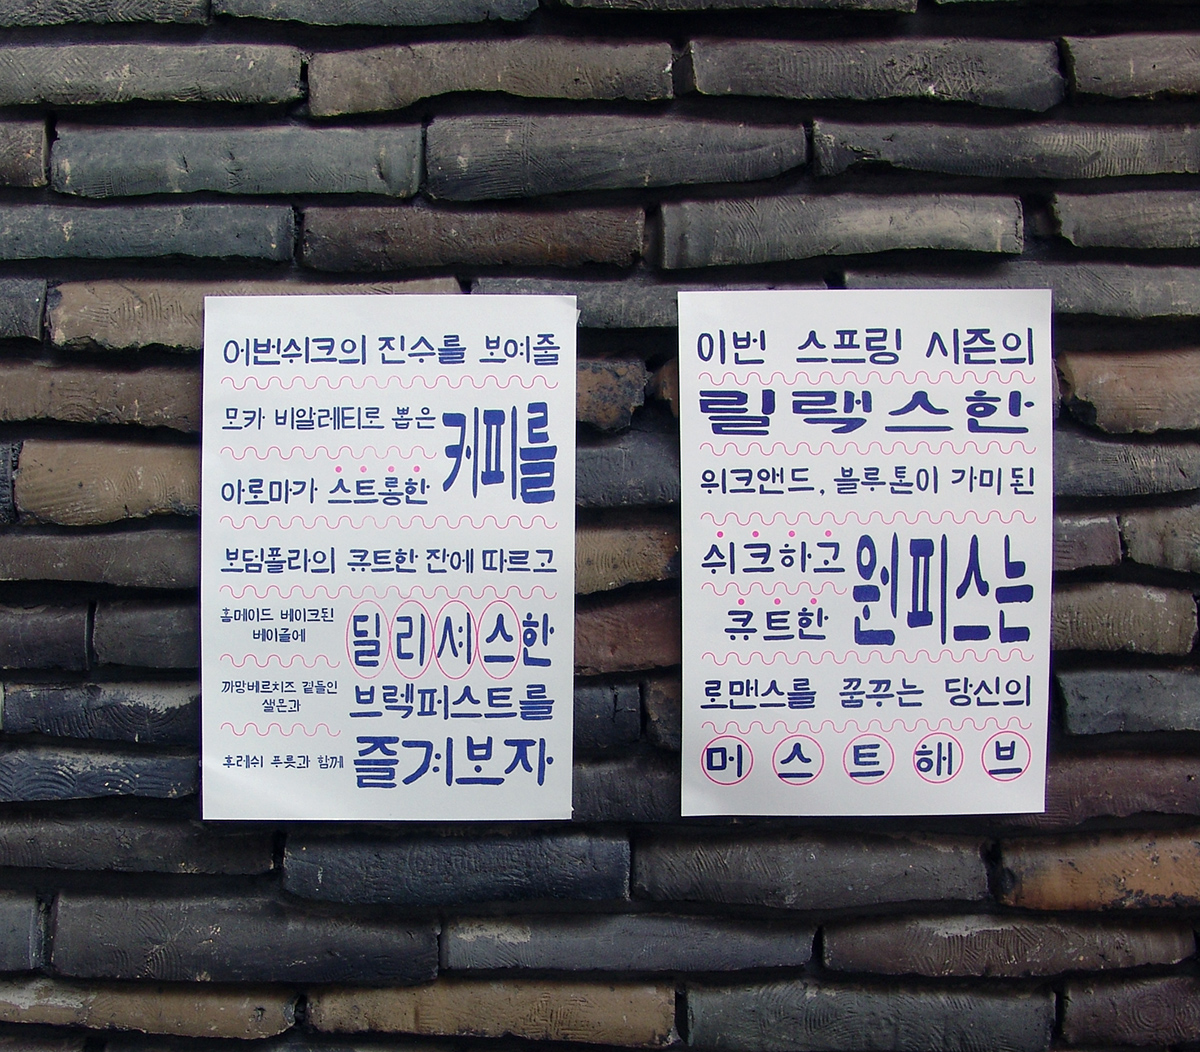 어번쉬크의 진수를 보여줄
모카 비알레티로 뽑은
커피를
아로마가 스트롱한
보덤폴라의 큐트한 잔에 따르고
홈메이드 베이크된
베이글에
딜리셔스한
까망베르치즈 곁들인
샐몬과
브렉퍼스트를
후레쉬 푸룻과 함께
즐겨보자
이번 스프링 시즌의
릴랙스한
위크앤드, 블루톤이 가미된
쉬크하고
원피스는
큐트한
로맨스를 꿈꾸는 당신의
머스트해브